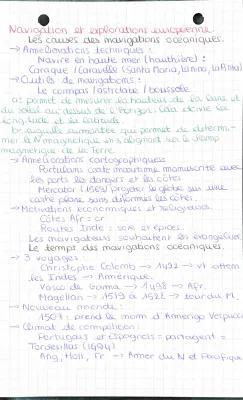 Navigation et explorations européenne.
Les causes des navigations océaniques.
→ Améliorations techniques :
Navire en haute mer (hauthière) :
Caraque / Caravelle (Santa Maria, la Nina, la Pinta)
→ Outils de navigations :
Le compas / astrolabe / boussole
a : permet de mesurer la hauteur de la lune et
du soleil au dessus de l'horizon. Cela donne la
longitude et la latitude
b : aiguille aimantée qui permet de détermi-
ner le N magnétique en s'alignant sur le champ
magnétique de la Terre.
→ Améliorations cartographiques
Portulans carte maritime manuscrite avec
les ports les dangers et les côtes
Mercator (1569) projeter le globe sur une
carte plane sans déformer les côtes.
→ Motivations économiques et religieuses.
Côtes Afr = or
Routes Inde = soie et épices.
Les navigateurs souhaitent les évangéliser
Le temps des navigations océaniques.
→ 3 voyages :
Christophe Colomb → 1492 → vt attein
les Indes → Amérique.
Vasco de Gama → 1498 → Afr.
Magellan → 1519 à 1522 → tour du M.
→ Nouveau monde :
1507 : prend le nom d'Amerigo Vespucci
→ Climat de compétition :
Portugais et Espagnols = partagent =
Tordesillas (1494)
Ang, Holl, Fr → Amer du N et Pacifique